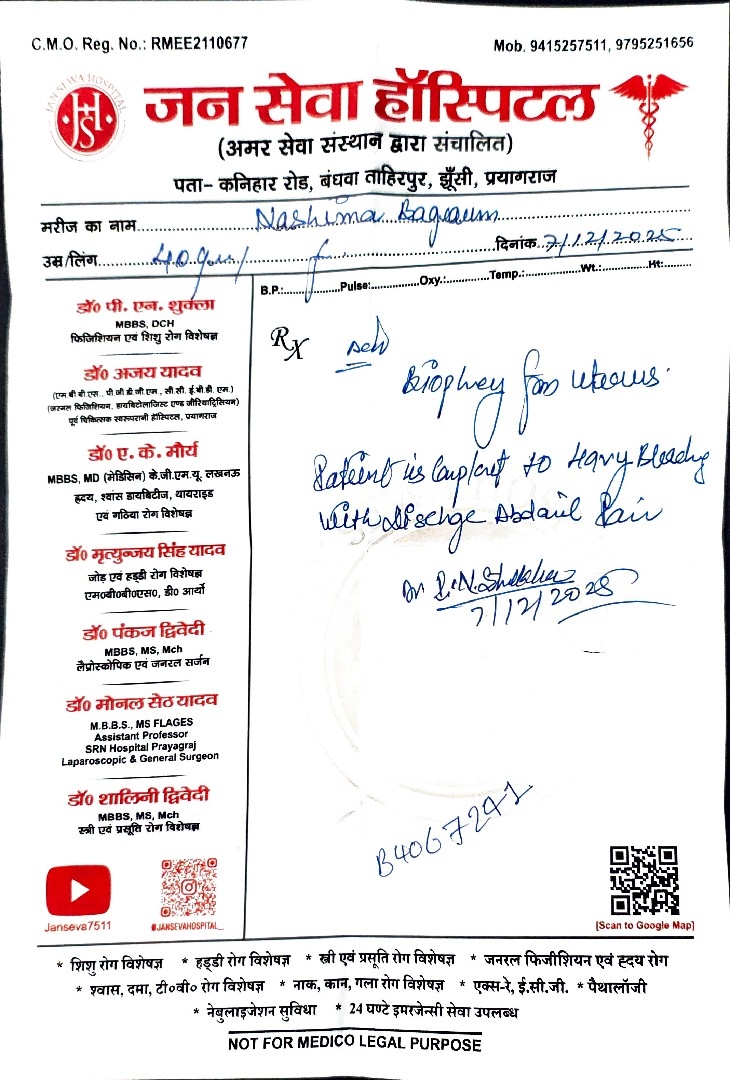 C.M.O. Reg. No.: RMEE2110677
Mob. 9415257511, 9795251656
JAN SEWA HOSPITAL
JHS
जन सेवा हॉस्पिटल
(अमर सेवा संस्थान द्वारा संचालित)
पता- कनिहार रोड, बंधवा ताहिरपुर, झूँसी, प्रयागराज
मरीज का नाम Nashima
दिनांक 7/12/2025
उम्र/लिंग 40
B.P.: Pulse: Oxy.: Temp.: Wt.: Ht:
Rx
डॉ० पी. एन. शुक्ला
MBBS, DCH
फिजिशियन एवं शिशु रोग विशेषज्ञ
डॉ० अजय यादव
(एम.बी.बी.एस., पी.जी.डी.जी.एम., सी.सी.ई.बी.डी.एम.)
(जनरल फिजिशियन, डायबिटोलाजिस्ट एण्ड जीरियाट्रिसियन)
पूर्व चिकित्सक स्वरूपरानी हॉस्पिटल, प्रयागराज
डॉ० ए. के. मौर्य
MBBS, MD (मेडिसिन) के.जी.एम.यू. लखनऊ
ह्रदय, श्वांस डायबिटीज, थायराइड
एवं गठिया रोग विशेषज्ञ
डॉ० मृत्युन्जय सिंह यादव
जोड़ एवं हड्डी रोग विशेषज्ञ
एम०बी०बी०एस०, डी० आर्थो
डॉ० पंकज द्विवेदी
MBBS, MS, Mch
लैप्रोस्कोपिक एवं जनरल सर्जन
डॉ० मोनल सेठ यादव
M.B.B.S., MS FLAGES
Assistant Professor
SRN Hospital Prayagraj
Laparoscopic & General Surgeon
डॉ० शालिनी द्विवेदी
MBBS, MS, Mch
स्त्री एवं प्रसूति रोग विशेषज्ञ
Biophey for uterus.
Patient is to Heavy Bleeding
With Pain
Dr P.N. Shukla
7/12/2025
B4067241
Janseva7511
#JANSEVAHOSPITAL_
[Scan to Google Map]
* शिशु रोग विशेषज्ञ * हड्डी रोग विशेषज्ञ * स्त्री एवं प्रसूति रोग विशेषज्ञ * जनरल फिजीशियन एवं ह्दय रोग
* श्वास, दमा, टी०वी० रोग विशेषज्ञ * नाक, कान, गला रोग विशेषज्ञ * एक्स-रे, ई.सी.जी. * पैथालॉजी
* नेबुलाइजेशन सुविधा * 24 घण्टे इमरजेन्सी सेवा उपलब्ध
NOT FOR MEDICO LEGAL PURPOSE